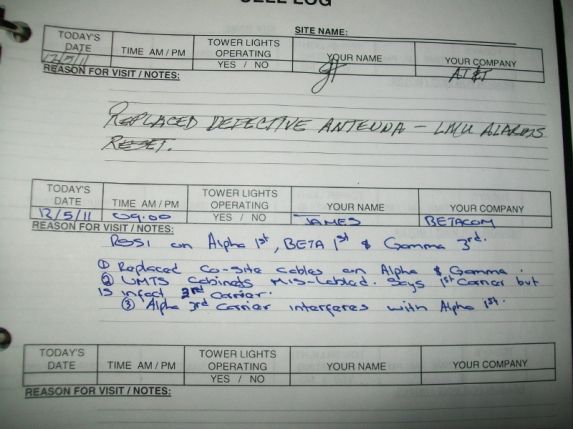 CELL LOG
SITE NAME:
TODAY'S DATE TIME AM / PM TOWER LIGHTS OPERATING YES / NO YOUR NAME YOUR COMPANY
12/5/11 AT&T
REASON FOR VISIT / NOTES:
REPLACED DEFECTIVE ANTENNA - LMU ALARMS
RESET.
TODAY'S DATE TIME AM / PM TOWER LIGHTS OPERATING YES / NO YOUR NAME YOUR COMPANY
12/5/11 09.00 JAMES BETACOM
REASON FOR VISIT / NOTES:
RSSI on Alpha 1st, BETA 1st & Gamma 3rd.
① Replaced co-site cables on Alpha & Gamma.
② UMTS Cabinets Mis-Labled. Says 1st Carrier but
is infact 2nd Carrier.
③ Alpha 3rd Carrier interferes with Alpha 1st.
TODAY'S DATE TIME AM / PM TOWER LIGHTS OPERATING YES / NO YOUR NAME YOUR COMPANY
REASON FOR VISIT / NOTES: